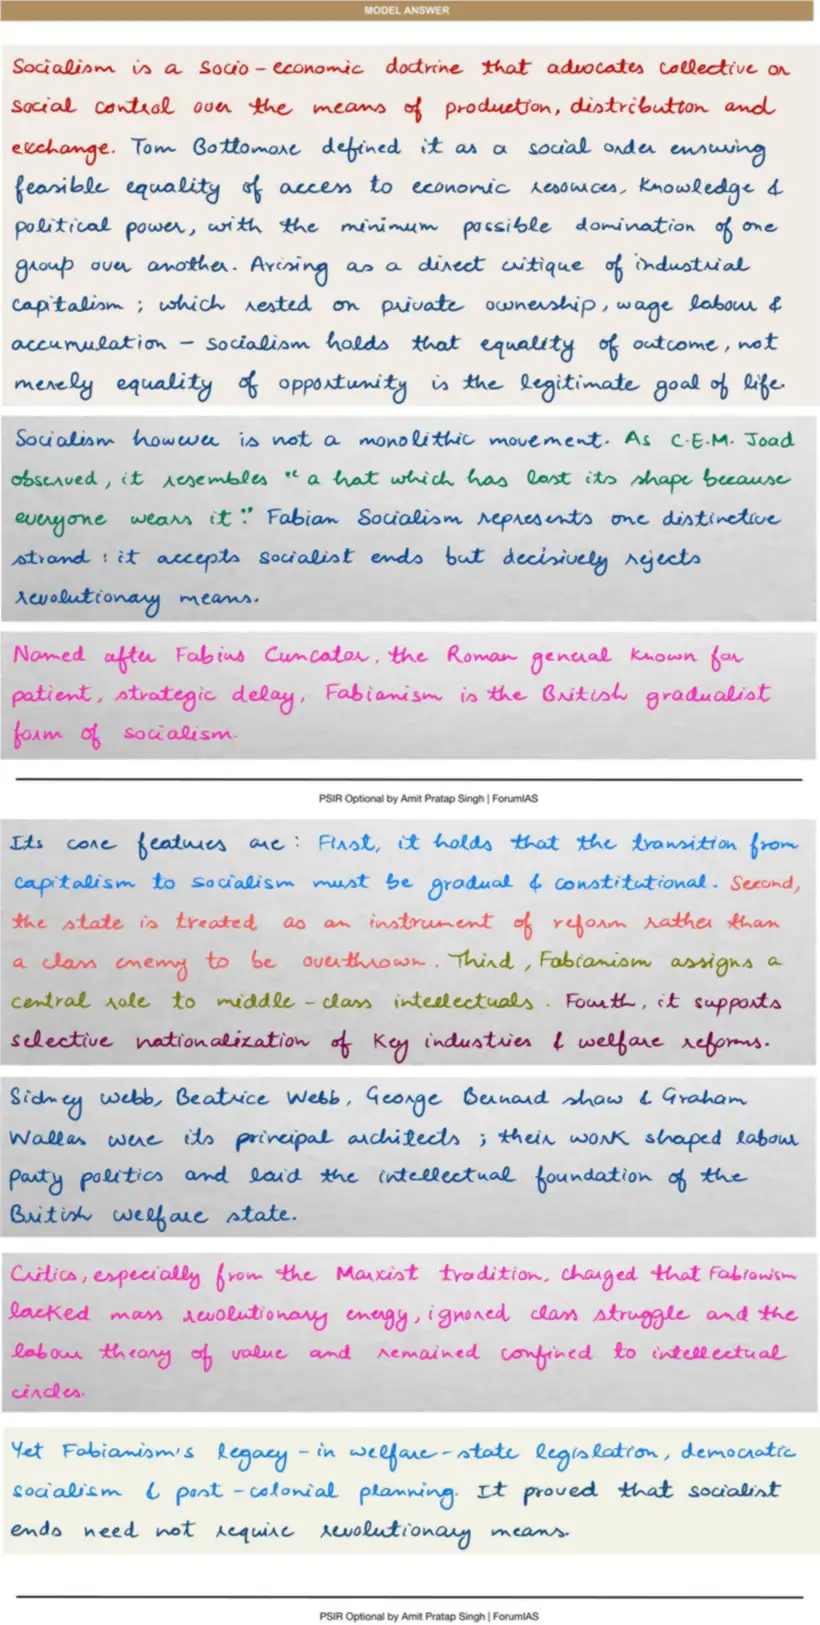 MODEL ANSWER
Socialism is a socio-economic doctrine that advocates collective or
social control over the means of production, distribution and
exchange. Tom Bottomore defined it as a social order ensuring
feasible equality of access to economic resources, knowledge &
political power, with the minimum possible domination of one
group over another. Arising as a direct critique of industrial
capitalism ; which rested on private ownership, wage labour &
accumulation – socialism holds that equality of outcome, not
merely equality of opportunity is the legitimate goal of life.
Socialism however is not a monolithic movement. As C.E.M. Joad
observed, it resembles "a hat which has lost its shape because
everyone wears it". Fabian Socialism represents one distinctive
strand : it accepts socialist ends but decisively rejects
revolutionary means.
Named after Fabius Cuncator, the Roman general known for
patient, strategic delay, Fabianism is the British gradualist
form of socialism.
PSIR Optional by Amit Pratap Singh | ForumIAS
Its core features are : First, it holds that the transition from
capitalism to socialism must be gradual & constitutional. Second,
the state is treated as an instrument of reform rather than
a class enemy to be overthrown. Third, Fabianism assigns a
central role to middle-class intellectuals. Fourth, it supports
selective nationalization of key industries & welfare reforms.
Sidney Webb, Beatrice Webb, George Bernard Shaw & Graham
Wallas were its principal architects ; their work shaped labour
party politics and laid the intellectual foundation of the
British welfare state.
Critics, especially from the Marxist tradition, charged that Fabianism
lacked mass revolutionary energy, ignored class struggle and the
labour theory of value and remained confined to intellectual
circles.
Yet Fabianism's legacy – in welfare-state legislation, democratic
socialism & post-colonial planning. It proved that socialist
ends need not require revolutionary means.
PSIR Optional by Amit Pratap Singh | ForumIAS